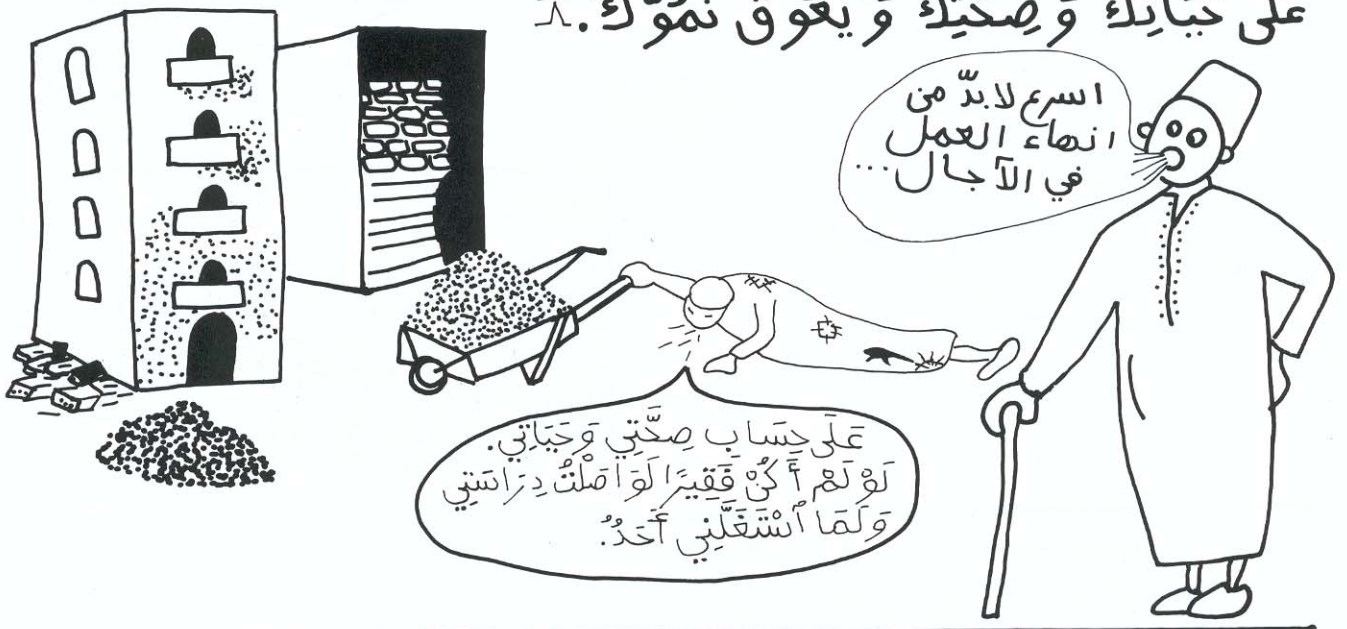 عَلَى حَيَاتِكَ وَ صِحَّتِكَ وَ يَعُوقُ نُمُوَّكَ.
اسرع لابدّ من
انهاء العمل
في الآجال...
عَلَى حِسَابِ صِحَّتِي وَحَيَاتِي.
لَوْ لَمْ أَكُنْ فَقِيرًا لَوَاصَلْتُ دِرَاسَتِي
وَلَمَا ٱسْتَغَلَّنِي أَحَدُ.